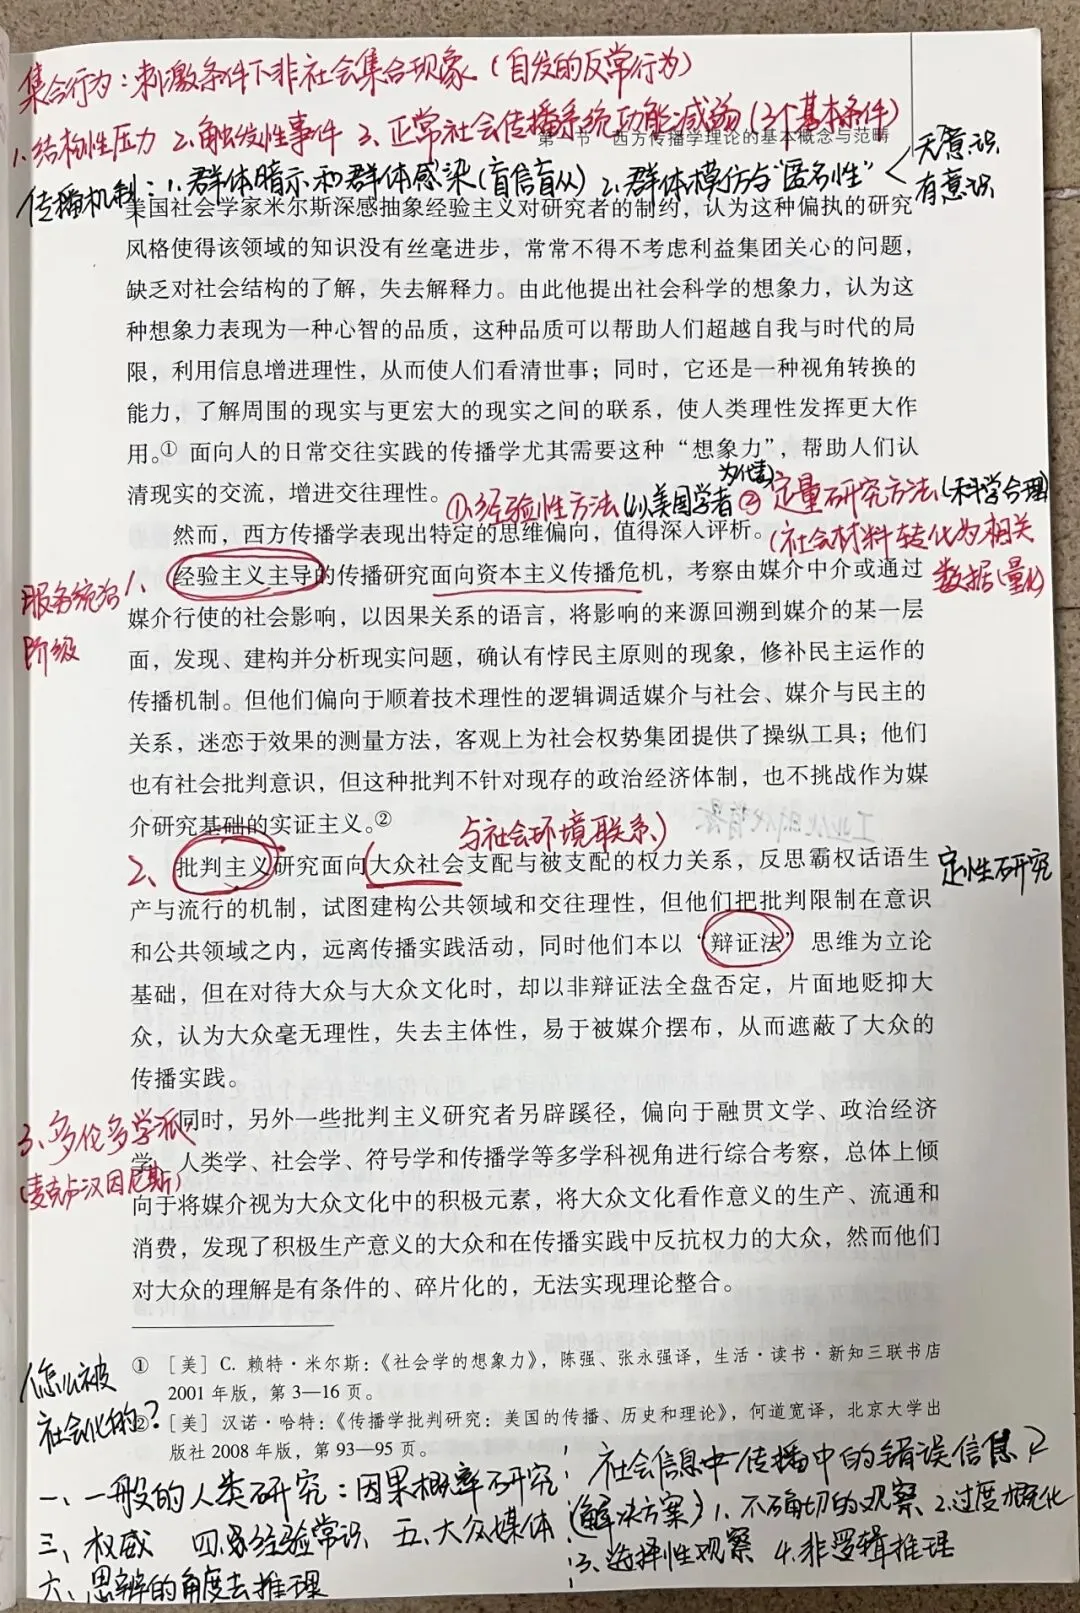 集合行为：刺激条件下非社会集合现象（自发的反常行为）
1.结构性压力 2.触发性事件 3.正常社会传播系统功能减弱（3个基本条件）
第一节 西方传播学理论的基本概念与范畴
传播机制：1.群体暗示和群体感染（盲信盲从） 2.群体模仿与“匿名性”
无意识
有意识
美国社会学家米尔斯深感抽象经验主义对研究者的制约，认为这种偏执的研究
风格使得该领域的知识没有丝毫进步，常常不得不考虑利益集团关心的问题，
缺乏对社会结构的了解，失去解释力。由此他提出社会科学的想象力，认为这
种想象力表现为一种心智的品质，这种品质可以帮助人们超越自我与时代的局
限，利用信息增进理性，从而使人们看清世事；同时，它还是一种视角转换的
能力，了解周围的现实与更宏大的现实之间的联系，使人类理性发挥更大作
用。① 面向人的日常交往实践的传播学尤其需要这种“想象力”，帮助人们认
清现实的交流，增进交往理性。
①经验性方法（以美国学者为代表） ②定量研究方法（科学合理）
然而，西方传播学表现出特定的思维偏向，值得深入评析。
（社会材料转化为相关
数据（量化）
服务统治
阶级
1、经验主义主导的传播研究面向资本主义传播危机，考察由媒介中介或通过
媒介行使的社会影响，以因果关系的语言，将影响的来源回溯到媒介的某一层
面，发现、建构并分析现实问题，确认有悖民主原则的现象，修补民主运作的
传播机制。但他们偏向于顺着技术理性的逻辑调适媒介与社会、媒介与民主的
关系，迷恋于效果的测量方法，客观上为社会权势集团提供了操纵工具；他们
也有社会批判意识，但这种批判不针对现存的政治经济体制，也不挑战作为媒
介研究基础的实证主义。②
与社会环境联系）
2、批判主义研究面向大众社会支配与被支配的权力关系，反思霸权话语生
定性研究
产与流行的机制，试图建构公共领域和交往理性，但他们把批判限制在意识
和公共领域之内，远离传播实践活动，同时他们本以“辩证法”思维为立论
基础，但在对待大众与大众文化时，却以非辩证法全盘否定，片面地贬抑大
众，认为大众毫无理性，失去主体性，易于被媒介摆布，从而遮蔽了大众的
传播实践。
3、多伦多学派
（麦克卢汉因尼斯）
同时，另外一些批判主义研究者另辟蹊径，偏向于融贯文学、政治经济
学、人类学、社会学、符号学和传播学等多学科视角进行综合考察，总体上倾
向于将媒介视为大众文化中的积极元素，将大众文化看作意义的生产、流通和
消费，发现了积极生产意义的大众和在传播实践中反抗权力的大众，然而他们
对大众的理解是有条件的、碎片化的，无法实现理论整合。
① ［美］C. 赖特·米尔斯：《社会学的想象力》，陈强、张永强译，生活·读书·新知三联书店
2001 年版，第 3—16 页。
② ［美］汉诺·哈特：《传播学批判研究：美国的传播、历史和理论》，何道宽译，北京大学出
版社 2008 年版，第 93—95 页。
怎么被
社会化的？
一、一般的人类研究：因果概率研究
三、权威 四、经验常识 五、大众媒体
六、思辨的角度去推理
社会信息中传播中的错误信息
（解决方案）1.不确切的观察 2.过度概化
3.选择性观察 4.非逻辑推理